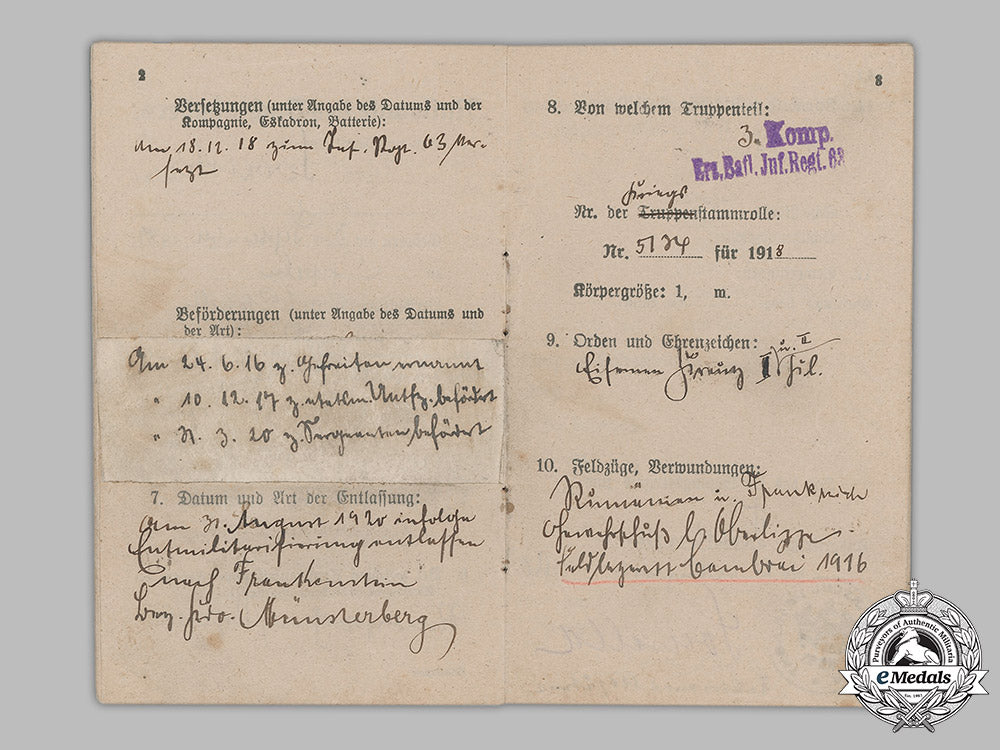 2
Versetzungen (unter Angabe des Datums und der
Kompagnie, Eskadron, Batterie):
Am 18.12.18 zum Inf. Regt. 63 ver-
setzt
Beförderungen (unter Angabe des Datums und
der Art):
Am 24.6.16 z. Gefreiten ernannt
" 10.12.17 z. Untfz. befördert
" 31.3.20 z. Sergeanten befördert
7. Datum und Art der Entlassung:
Am 31. August 1920 infolge
Entmilitarisierung entlassen
nach Frankenstein
Bez. Kdo. Münsterberg
3
8. Von welchem Truppenteil:
3. Komp.
Ers. Batl. Inf. Regt. 63
Kriegs
Nr. der Truppenstammrolle:
Nr. für 1918
Körpergröße: 1, m.
9. Orden und Ehrenzeichen:
u. II
Eisernes Kreuz
10. Feldzüge, Verwundungen:
Rumänien u. Frankreich
Gewehrschuß l. Oberlippe
Feldlazarett Cambrai 1916
Purveyors of Authentic Militaria
eMedals
Est. 1967